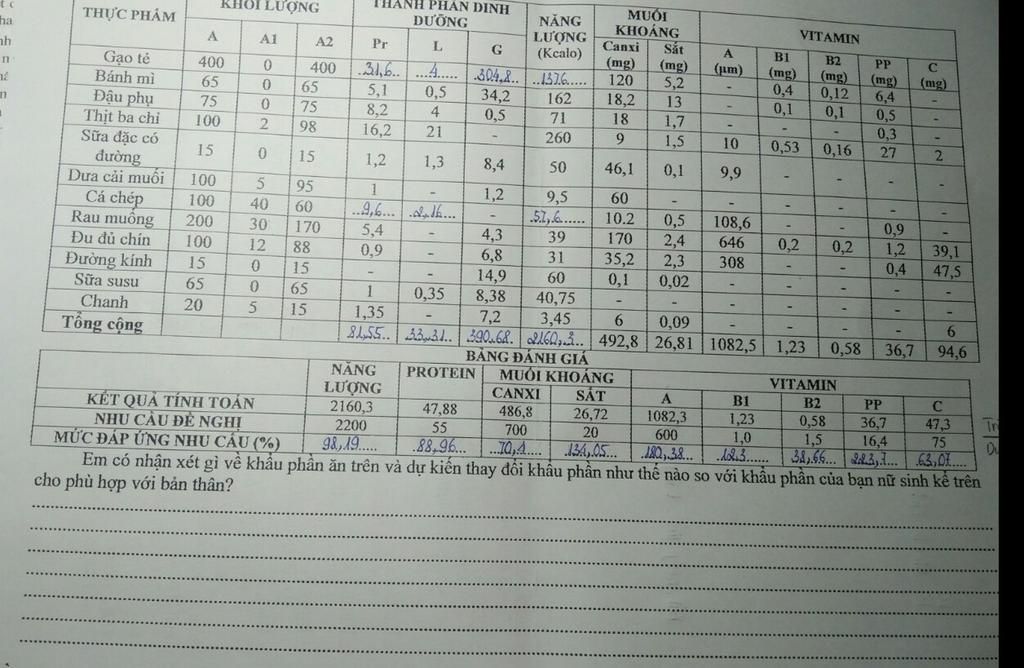 THỰC PHẨM KHỐI LƯỢNG THÀNH PHẦN DINH DƯỠNG NĂNG LƯỢNG (Kcalo) MUỐI KHOÁNG VITAMIN
A A1 A2 Pr L G Canxi (mg) Sắt (mg) A (µm) B1 (mg) B2 (mg) PP (mg) C (mg)
Gạo tẻ 400 0 400 31,6 4 304,8 1376 120 5,2 - 0,4 0,12 6,4 -
Bánh mì 65 0 65 5,1 0,5 34,2 162 18,2 13 - 0,1 0,1 0,5 -
Đậu phụ 75 0 75 8,2 4 0,5 71 18 1,7 - - - 0,3 -
Thịt ba chỉ 100 2 98 16,2 21 - 260 9 1,5 10 0,53 0,16 27 2
Sữa đặc có đường 15 0 15 1,2 1,3 8,4 50 46,1 0,1 9,9 - - - -
Dưa cải muối 100 5 95 1 - 1,2 9,5 60 - - - - - -
Cá chép 100 40 60 9,6 2,16 - 57,6 10.2 0,5 108,6 - - 0,9 -
Rau muống 200 30 170 5,4 - 4,3 39 170 2,4 646 0,2 0,2 1,2 39,1
Đu đủ chín 100 12 88 0,9 - 6,8 31 35,2 2,3 308 - - 0,4 47,5
Đường kính 15 0 15 - - 14,9 60 0,1 0,02 - - - - -
Sữa susu 65 0 65 1 0,35 8,38 40,75 - - - - - - -
Chanh 20 5 15 1,35 - 7,2 3,45 6 0,09 - - - - 6
Tổng cộng 81,55 33,31 390,68 2160,3 492,8 26,81 1082,5 1,23 0,58 36,7 94,6
BẢNG ĐÁNH GIÁ
NĂNG LƯỢNG PROTEIN MUỐI KHOÁNG VITAMIN
CANXI SẮT A B1 B2 PP C
KẾT QUẢ TÍNH TOÁN 2160,3 47,88 486,8 26,72 1082,3 1,23 0,58 36,7 47,3
NHU CẦU ĐỀ NGHỊ 2200 55 700 20 600 1,0 1,5 16,4 75
MỨC ĐÁP ỨNG NHU CẦU (%) 98,19 88,96 70,4 134,05 180,38 123 38,66 223,7 63,07
Em có nhận xét gì về khẩu phần ăn trên và dự kiến thay đổi khẩu phần như thế nào so với khẩu phần của bạn nữ sinh kể trên
cho phù hợp với bản thân?